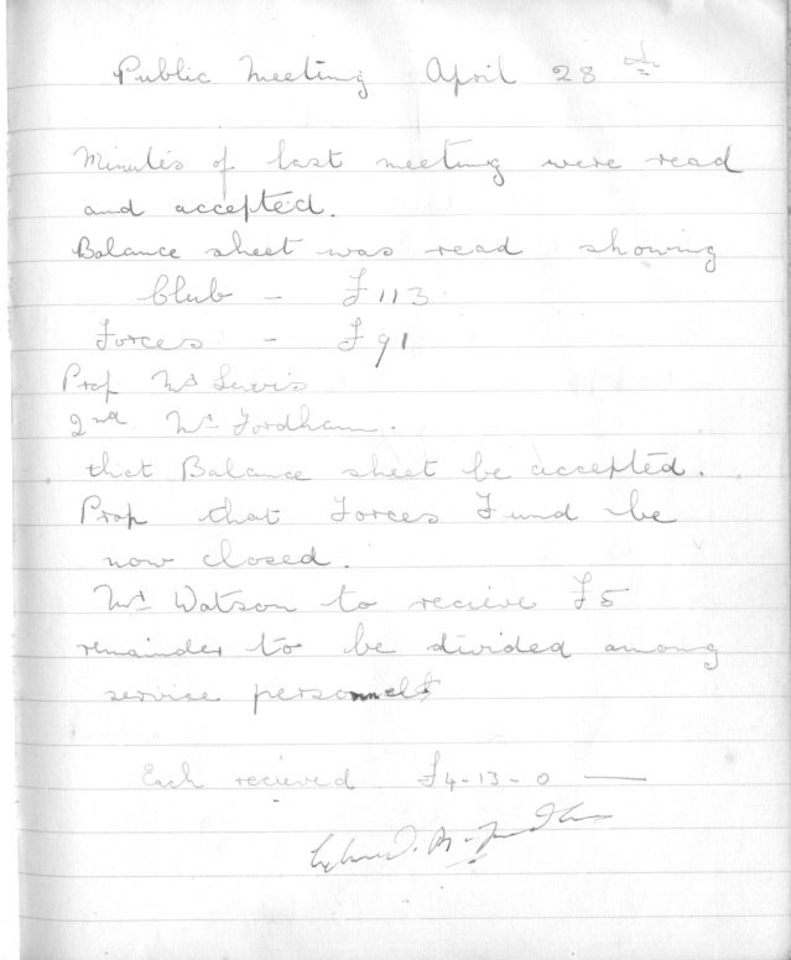 Public Meeting April 28th
Minutes of last meeting were read
and accepted.
Balance sheet was read showing
Club - £113
Forces - £91
Prop Mr Lewis
2nd Mr Fordham.
that Balance sheet be accepted.
Prop that Forces Fund be
now closed.
Mr Watson to recieve £5
remainder to be divided among
service personnel
Each recieved £4-13-0 —